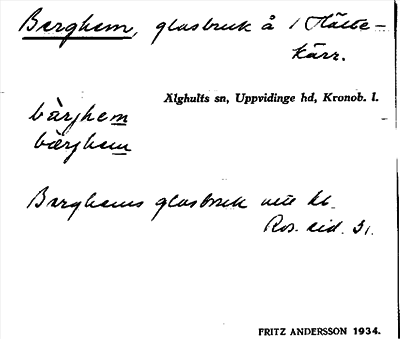 Berghem, glasbruk å 1 Hätte-
kärr.
Älghults sn, Uppvidinge hd, Kronob. l.
bàrjhem
bærjhem
Berghems glasbruk
Ros. sid. 31.
FRITZ ANDERSSON 1934.